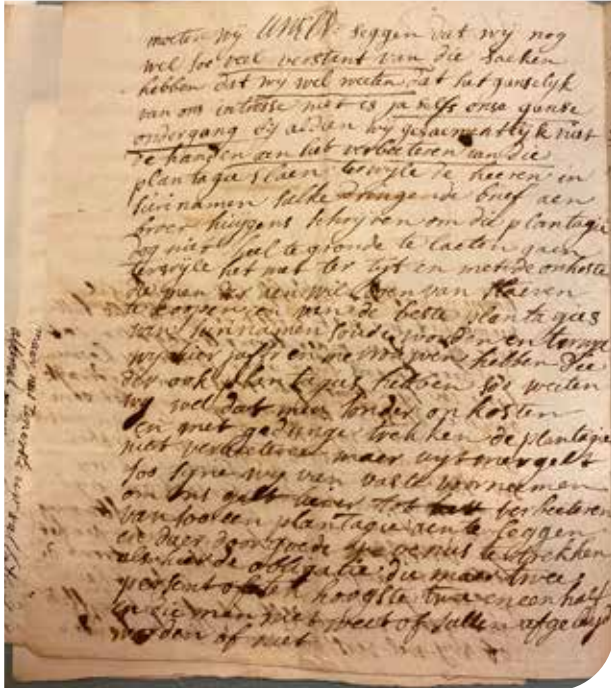 moeten wij UWEd: seggen dat wij nog
wel soo veel verstant van die saeken
hebben dat wij wel weeten dat het ganselijk
van ons intresse niet is ja selfs onse ganse
ondergang bij aldien wij gesaementlijk niet
de handen aen het verbeeteren van die
plantagie slaen terwijle de heeren in
surinamen sulke dringende brief aen
broer huijgens schrijven om die plantagie
dog niet heel te gronde te laeten gaen
terwijle het met ter tijt en met de onkoste
die men der aen wil doen van slaeven
te koopen een van de beste plantagies
van surinamen soude worden en terwijl
wij hier juffren mevrouwen hebben die
der ook plantagies hebben soo weeten
wij wel dat men sonder onkosten
en met gedurige trekken de plantagie
niet verbeetere maer uijtmergelt
soo sijne wij van vaste voorneemen
om ons gelt liever tot verbeeteren
van soo een plantagie aen te leggen
en daer door goede revenus te trekken
als hier de obligatie die maer twee
persent of ten hoogste twe en een half
en die men niet weet of sullen afgelegt
worden of niet